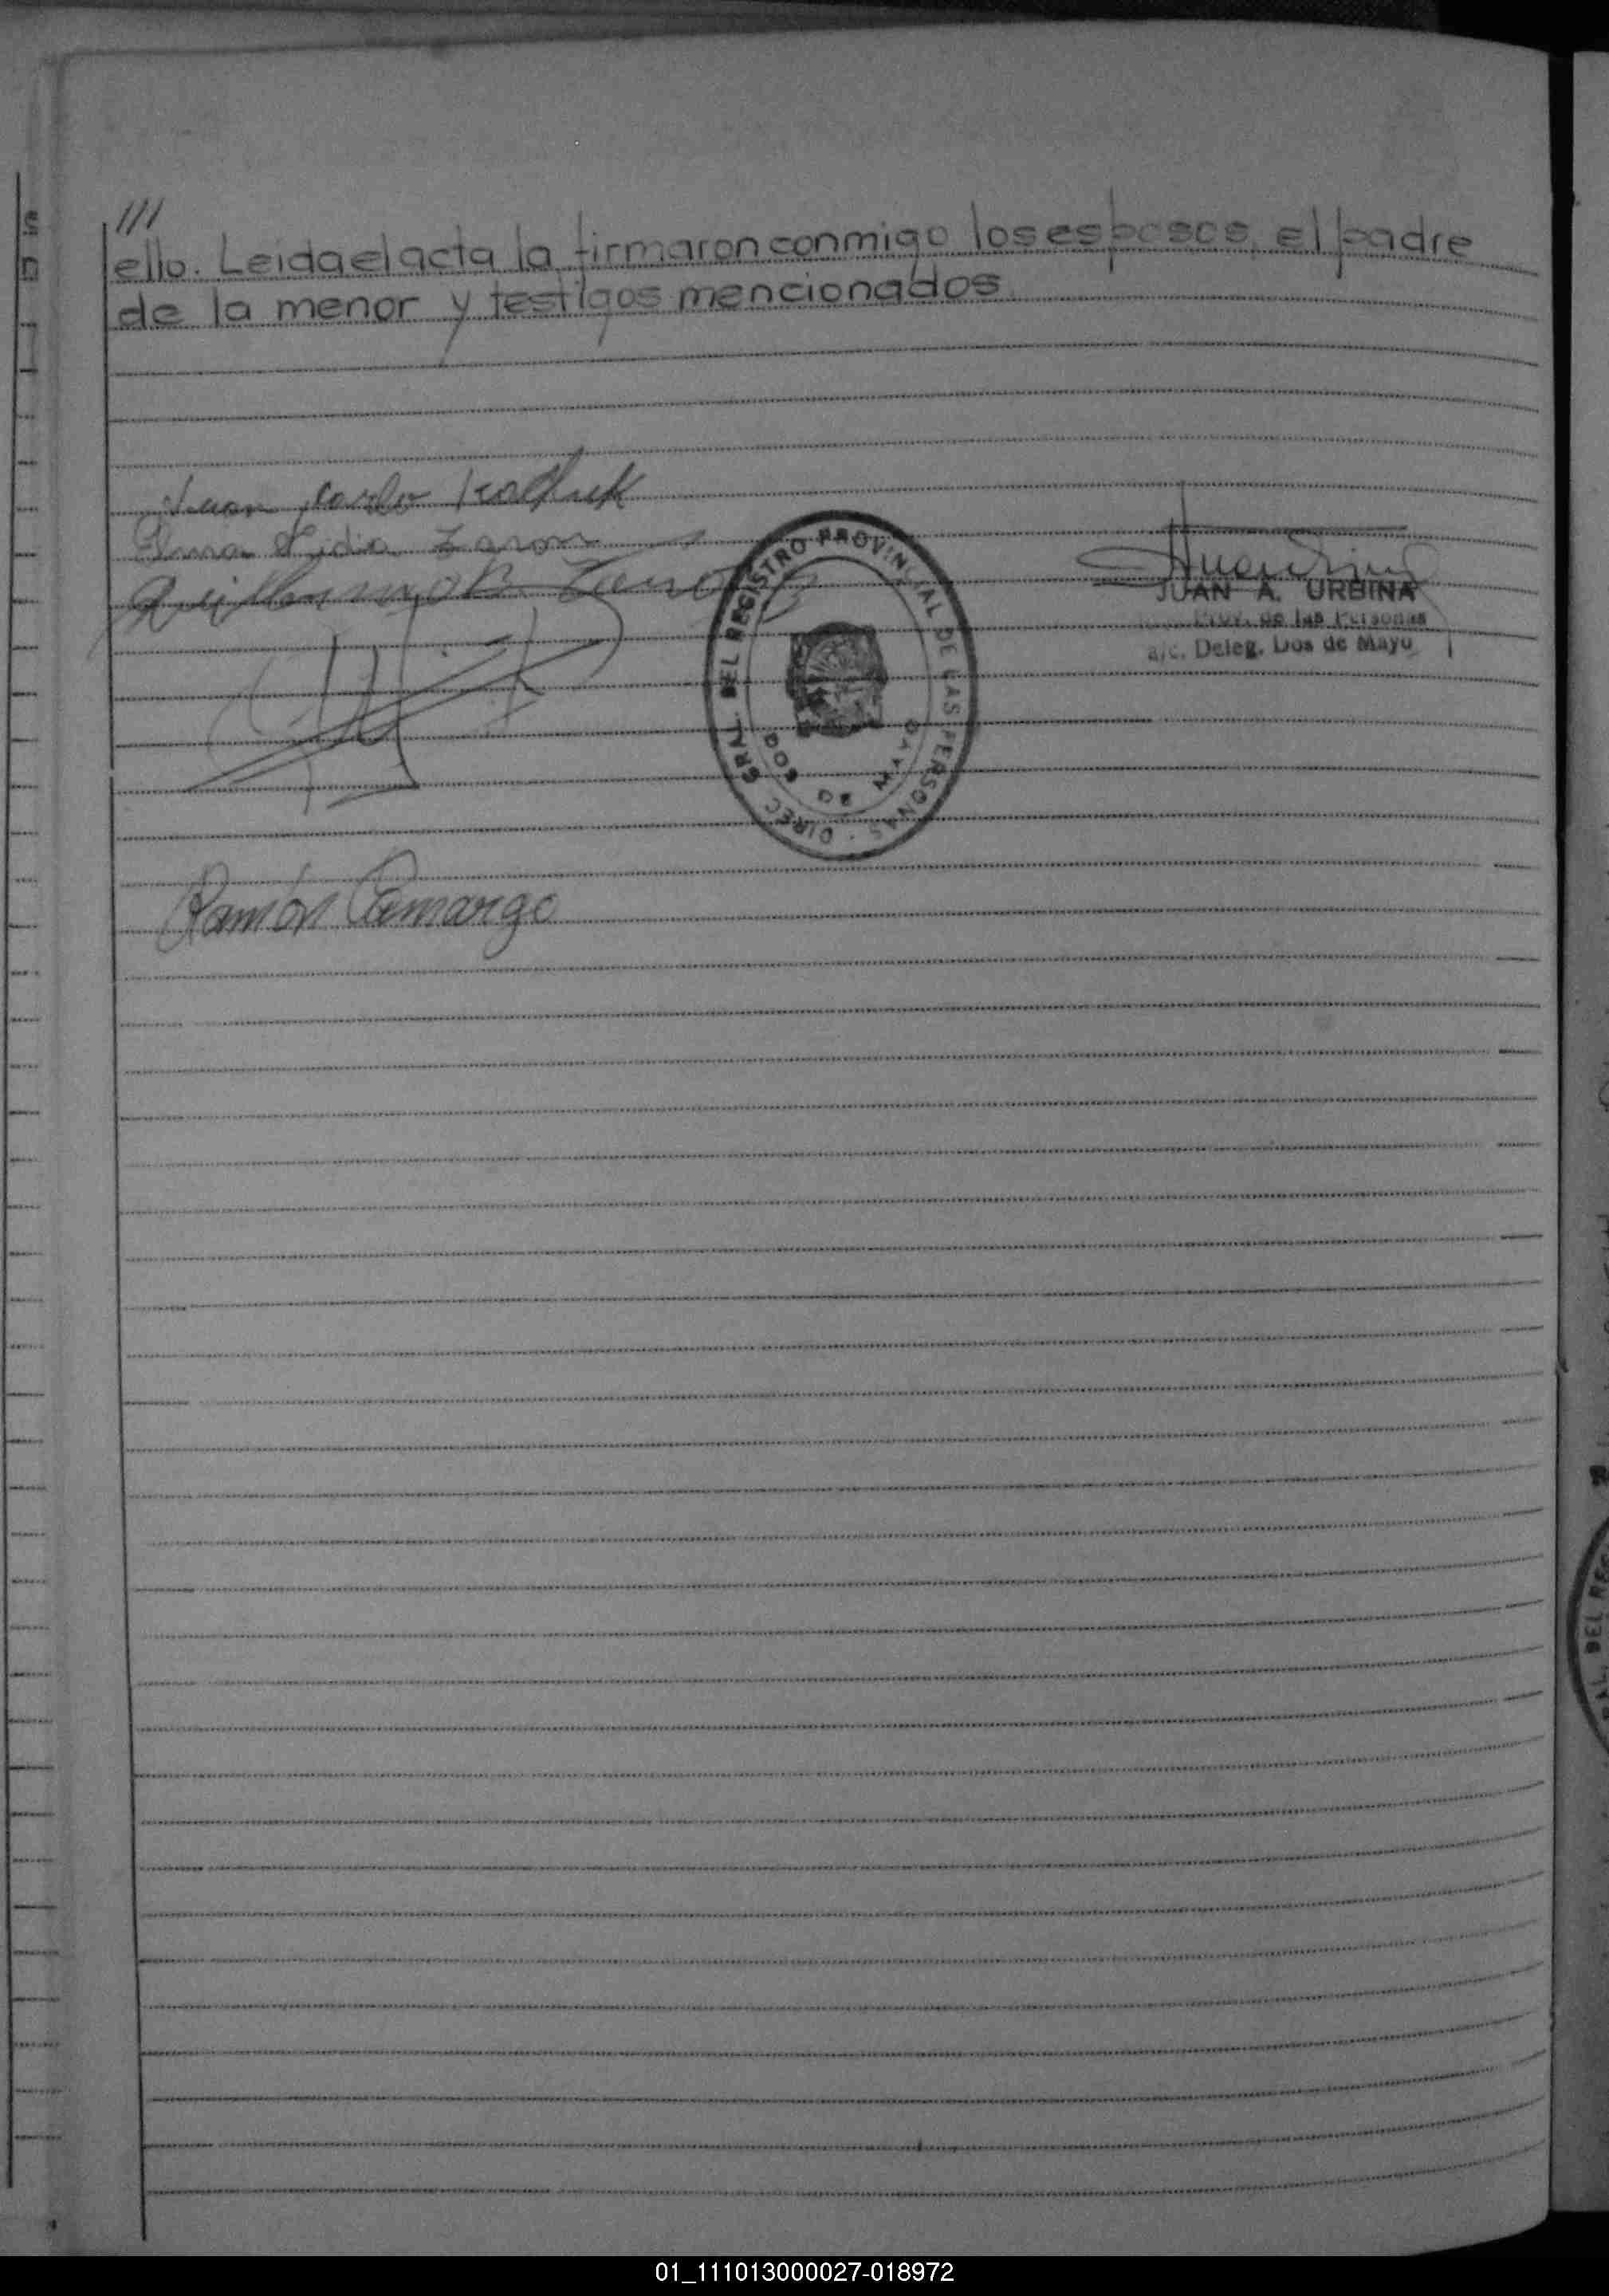 ///
ello. Leida el acta la firmaron conmigo los esposos, el padre
de la menor y testigos mencionados
Juan Carlo
Lidia
Ramón Camargo
DIREC. GRAL. DEL REGISTRO PROVINCIAL DE LAS PERSONAS
DOS DE MAYO
JUAN A. URBINA
Prov. de las Personas
a/c. Deleg. Dos de Mayo
01_111013000027-018972